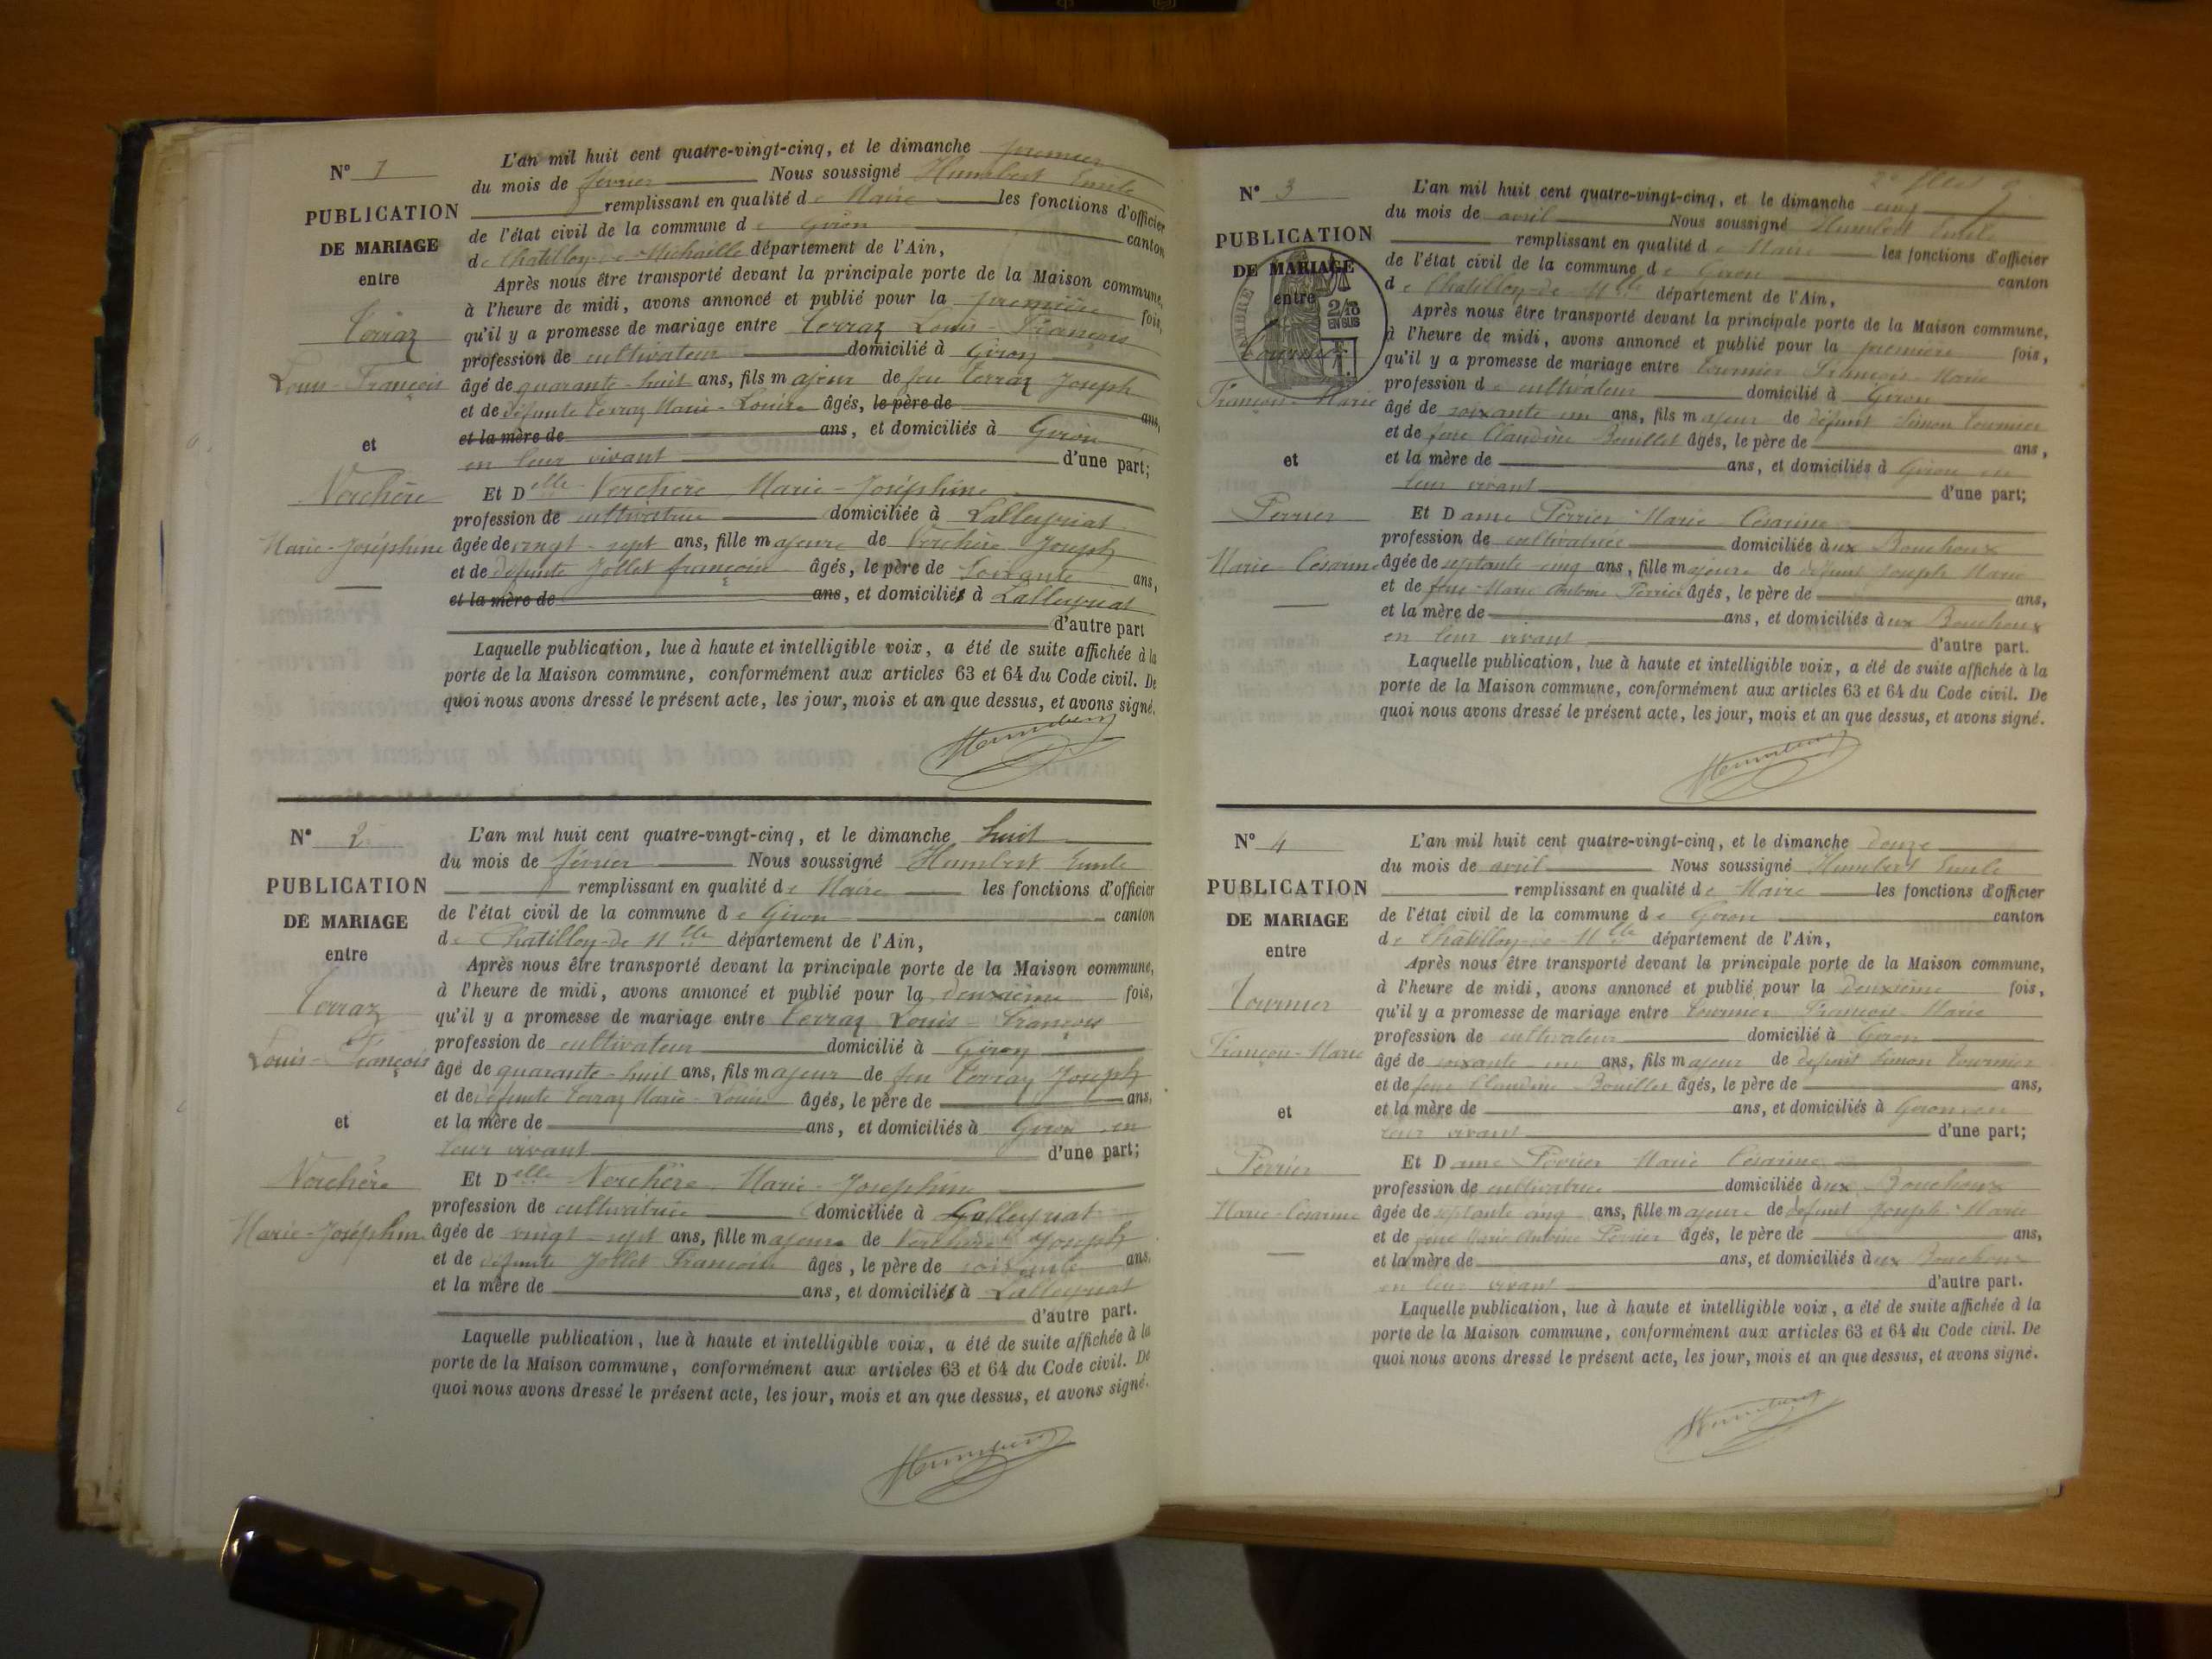 N° 1
PUBLICATION
DE MARIAGE
entre
Terraz
Louis-François
et
Verchère
Marie-Joséphine
L'an mil huit cent quatre-vingt-cinq, et le dimanche premier
du mois de février Nous soussigné Humbert Emile
remplissant en qualité de Maire les fonctions d'officier
de l'état civil de la commune de Giron canton
de Chatillon-de-Michaille département de l'Ain,
Après nous être transporté devant la principale porte de la Maison commune,
à l'heure de midi, avons annoncé et publié pour la première fois,
qu'il y a promesse de mariage entre Terraz Louis-François
profession de cultivateur domicilié à Giron
âgé de quarante-huit ans, fils majeur de feu Terraz Joseph
et de défunte Terraz Marie-Louise âgés, le père de ans,
et la mère de ans, et domiciliés à Giron
en leur vivant d'une part;
Et Delle Verchère Marie-Joséphine
profession de cultivatrice domiciliée à Lalleyriat
âgée de vingt-sept ans, fille majeure de Verchère Joseph
et de défunte Jollet françoise âgés, le père de soixante ans,
et la mère de ans, et domiciliés à Lalleyriat
d'autre part
Laquelle publication, lue à haute et intelligible voix, a été de suite affichée à la
porte de la Maison commune, conformément aux articles 63 et 64 du Code civil. De
quoi nous avons dressé le présent acte, les jour, mois et an que dessus, et avons signé.
Humbert
N° 2
PUBLICATION
DE MARIAGE
entre
Terraz
Louis-François
et
Verchère
Marie-Joséphine
L'an mil huit cent quatre-vingt-cinq, et le dimanche huit
du mois de février Nous soussigné Humbert Emile
remplissant en qualité de Maire les fonctions d'officier
de l'état civil de la commune de Giron canton
de Chatillon-de-Mlle département de l'Ain,
Après nous être transporté devant la principale porte de la Maison commune,
à l'heure de midi, avons annoncé et publié pour la deuxième fois,
qu'il y a promesse de mariage entre Terraz Louis-François
profession de cultivateur domicilié à Giron
âgé de quarante-huit ans, fils majeur de feu Terraz Joseph
et de défunte Terraz Marie-Louise âgés, le père de ans,
et la mère de ans, et domiciliés à Giron en
leur vivant d'une part;
Et Delle Verchère Marie-Joséphine
profession de cultivatrice domiciliée à Lalleyriat
âgée de vingt-sept ans, fille majeure de Verchère Joseph
et de défunte Jollet Françoise âgés, le père de soixante ans,
et la mère de ans, et domiciliés à Lalleyriat
d'autre part.
Laquelle publication, lue à haute et intelligible voix, a été de suite affichée à la
porte de la Maison commune, conformément aux articles 63 et 64 du Code civil. De
quoi nous avons dressé le présent acte, les jour, mois et an que dessus, et avons signé.
Humbert
N° 3
PUBLICATION
DE MARIAGE
entre
Tournier
François-Marie
et
Perrier
Marie-Césarine
L'an mil huit cent quatre-vingt-cinq, et le dimanche cinq
du mois de avril Nous soussigné Humbert Emile
remplissant en qualité de Maire les fonctions d'officier
de l'état civil de la commune de Giron canton
de Chatillon-de-Mlle département de l'Ain,
Après nous être transporté devant la principale porte de la Maison commune,
à l'heure de midi, avons annoncé et publié pour la première fois,
qu'il y a promesse de mariage entre Tournier François-Marie
profession de cultivateur domicilié à Giron
âgé de soixante-un ans, fils majeur de défunt Simon Tournier
et de feue Claudine Bouillet âgés, le père de ans,
et la mère de ans, et domiciliés à Giron en
leur vivant d'une part;
Et Dame Perrier Marie-Césarine
profession de cultivatrice domiciliée aux Bouchoux
âgée de septante-cinq ans, fille majeure de défunt Joseph Marie
et de feue Marie Antoine Perrier âgés, le père de ans,
et la mère de ans, et domiciliés aux Bouchoux
en leur vivant d'autre part.
Laquelle publication, lue à haute et intelligible voix, a été de suite affichée à la
porte de la Maison commune, conformément aux articles 63 et 64 du Code civil. De
quoi nous avons dressé le présent acte, les jour, mois et an que dessus, et avons signé.
Humbert
N° 4
PUBLICATION
DE MARIAGE
entre
Tournier
François-Marie
et
Perrier
Marie-Césarine
L'an mil huit cent quatre-vingt-cinq, et le dimanche douze
du mois de avril Nous soussigné Humbert Emile
remplissant en qualité de Maire les fonctions d'officier
de l'état civil de la commune de Giron canton
de Châtillon-de-Mlle département de l'Ain,
Après nous être transporté devant la principale porte de la Maison commune,
à l'heure de midi, avons annoncé et publié pour la deuxième fois,
qu'il y a promesse de mariage entre Tournier François-Marie
profession de cultivateur domicilié à Giron
âgé de soixante-un ans, fils majeur de défunt Simon Tournier
et de feue Claudine Bouillet âgés, le père de ans,
et la mère de ans, et domiciliés à Giron en
leur vivant d'une part;
Et Dame Perrier Marie Césarine
profession de cultivatrice domiciliée aux Bouchoux
âgée de septante cinq ans, fille majeure de défunt Joseph-Marie
et de feue Marie Antoine Perrier âgés, le père de ans,
et la mère de ans, et domiciliés aux Bouchoux
en leur vivant d'autre part.
Laquelle publication, lue à haute et intelligible voix, a été de suite affichée à la
porte de la Maison commune, conformément aux articles 63 et 64 du Code civil. De
quoi nous avons dressé le présent acte, les jour, mois et an que dessus, et avons signé.
Humbert